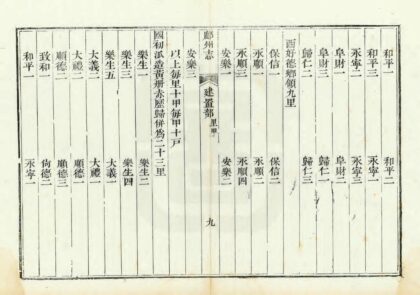 和平一　和平二
和平三　永寧一
永寧二　永寧三
阜財一　阜財二
阜財三　歸仁一
歸仁二　歸仁三
西好德鄉領九里
保信一　保信二
永順一　永順二
永順三　永順四
安樂一　安樂二
州志　建置部　里甲　九
安樂三
以上每里十甲每甲十戶
國初派造黃冊赤歷歸併爲二十三里
樂生一　樂生二
樂生三　樂生四
樂生五　大義一
大義二　大禮一
大禮二　順德一
順德二　順德三
致和　尚德二
和平一　永寧一